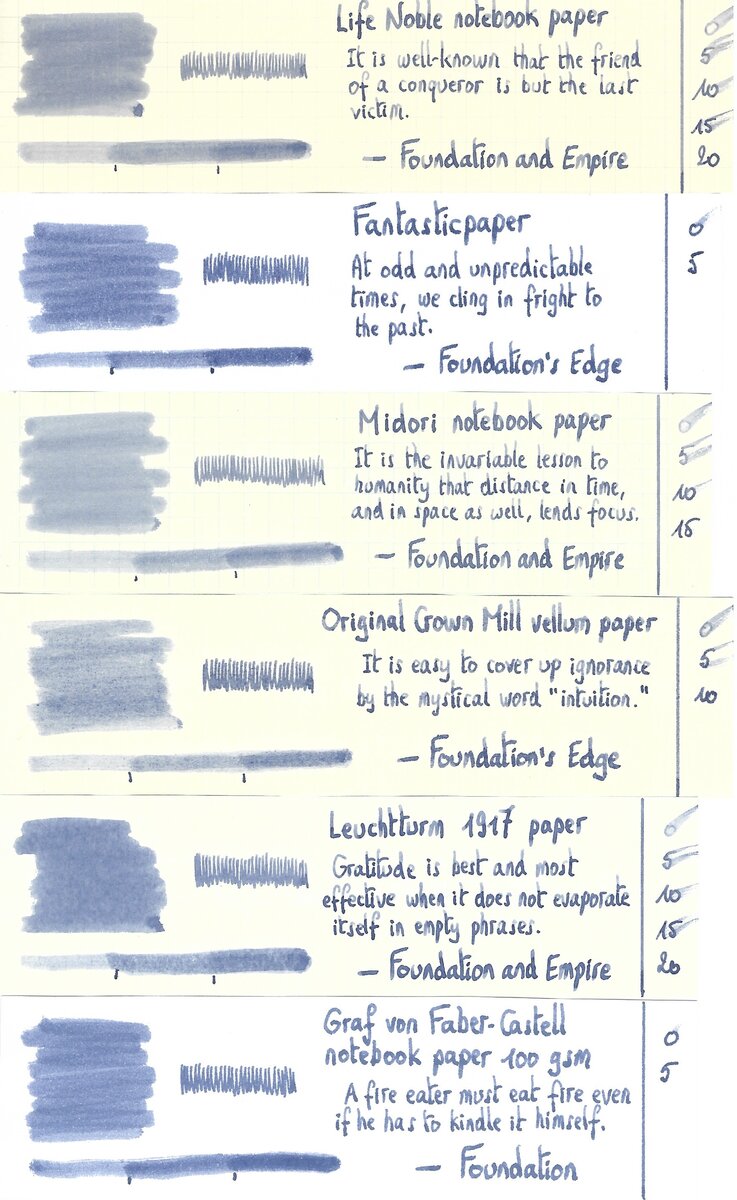 Life Noble notebook paper
It is well-known that the friend
of a conqueror is but the last
victim.
— Foundation and Empire
0
5
10
15
20
Fantasticpaper
At odd and unpredictable
times, we cling in fright to
the past.
— Foundation's Edge
0
5
Midori notebook paper
It is the invariable lesson to
humanity that distance in time,
and in space as well, lends focus.
— Foundation and Empire
0
5
10
15
Original Crown Mill vellum paper
It is easy to cover up ignorance
by the mystical word "intuition."
— Foundation's Edge
0
5
10
Leuchtturm 1917 paper
Gratitude is best and most
effective when it does not evaporate
itself in empty phrases.
— Foundation and Empire
0
5
10
15
20
Graf von Faber-Castell
notebook paper 100 gsm
A fire eater must eat fire even
if he has to kindle it himself.
— Foundation
0
5